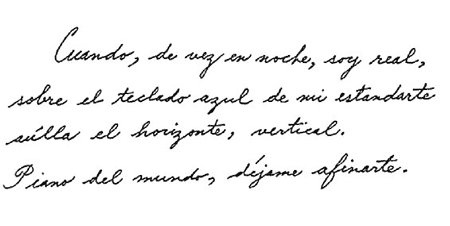 Cuando, de vez en noche, soy real,
sobre el teclado azul de mi estandarte
aúlla el horizonte, vertical.
Piano del mundo, déjame afinarte.